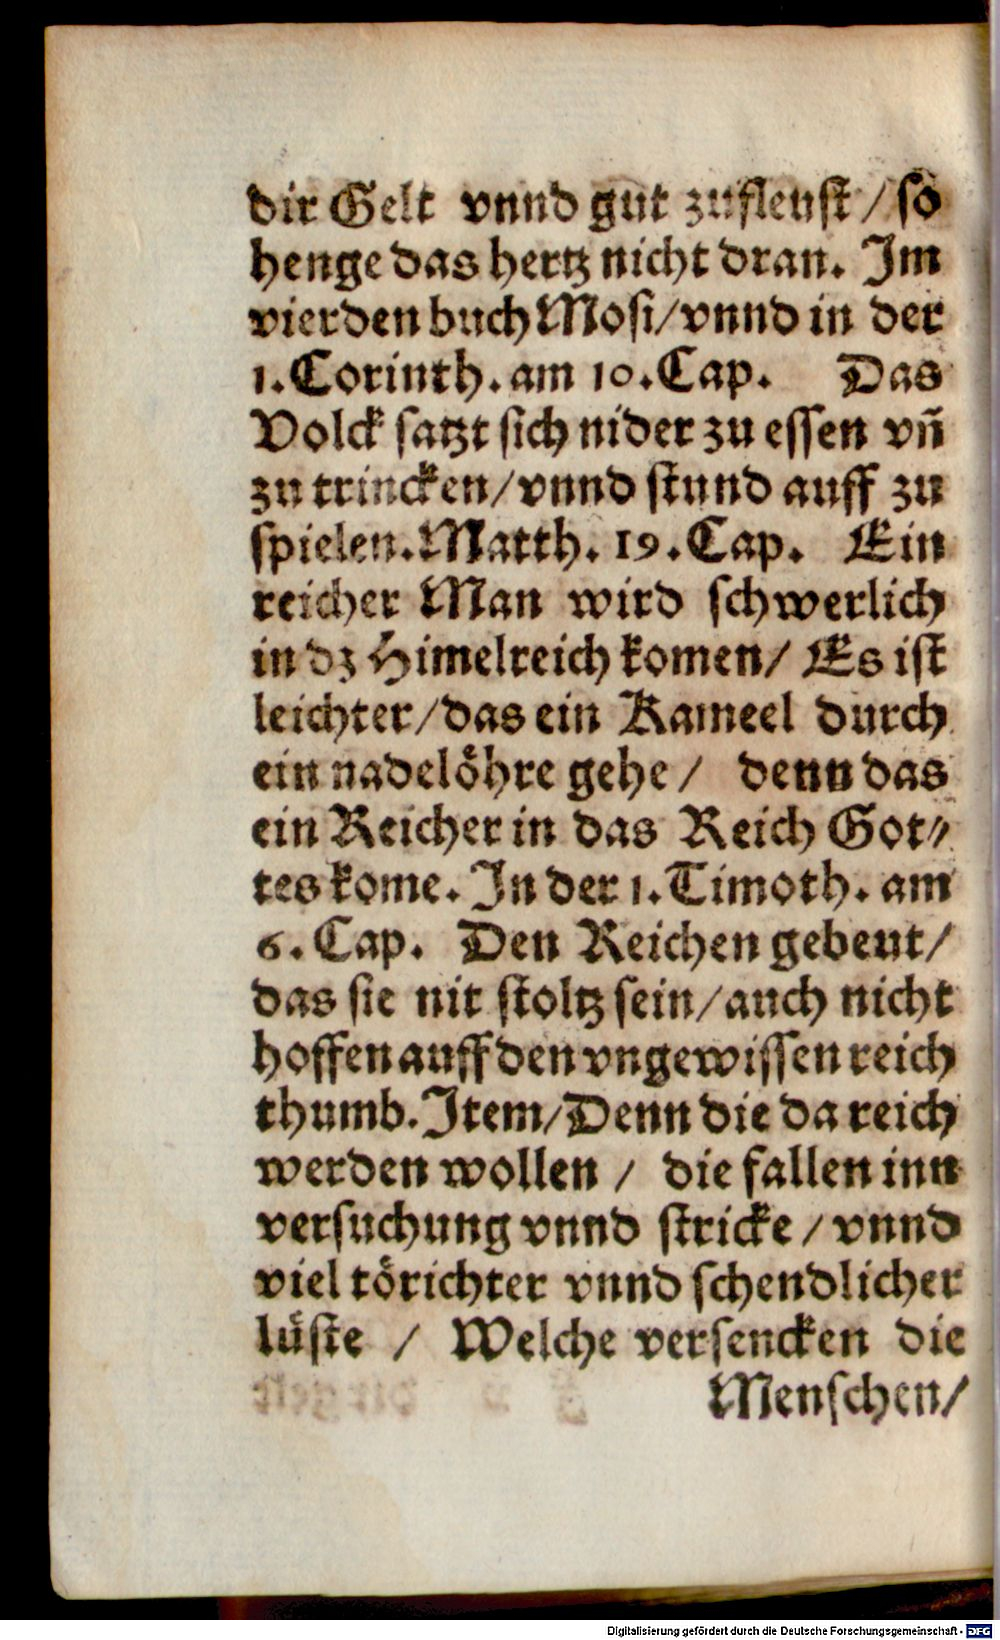 dir Gelt vnnd gut zufleust / so
henge das hertz nicht dran. Im
vierden buch Mosi/vnnd in der
1. Corinth. am 10. Cap. Das
Volck satzt sich nider zu essen vñ
zu trincken/vnnd stund auff zu
spielen. Matth. 19. Cap. Ein
reicher Man wird schwerlich
in dz Himelreich komen/ Es ist
leichter/das ein Kameel durch
ein nadelöhre gehe / denn das
ein Reicher in das Reich Got⸗
tes kome. In der 1. Timoth. am
6. Cap. Den Reichen gebeut/
das sie nit stoltz sein/auch nicht
hoffen auff den vngewissen reich
thumb. Item/Denn die da reich
werden wollen / die fallen inn
versuchung vnnd stricke / vnnd
viel törichter vnnd schendlicher
lüste / Welche versencken die
Menschen/
Digitalisierung gefördert durch die Deutsche Forschungsgemeinschaft - DFG